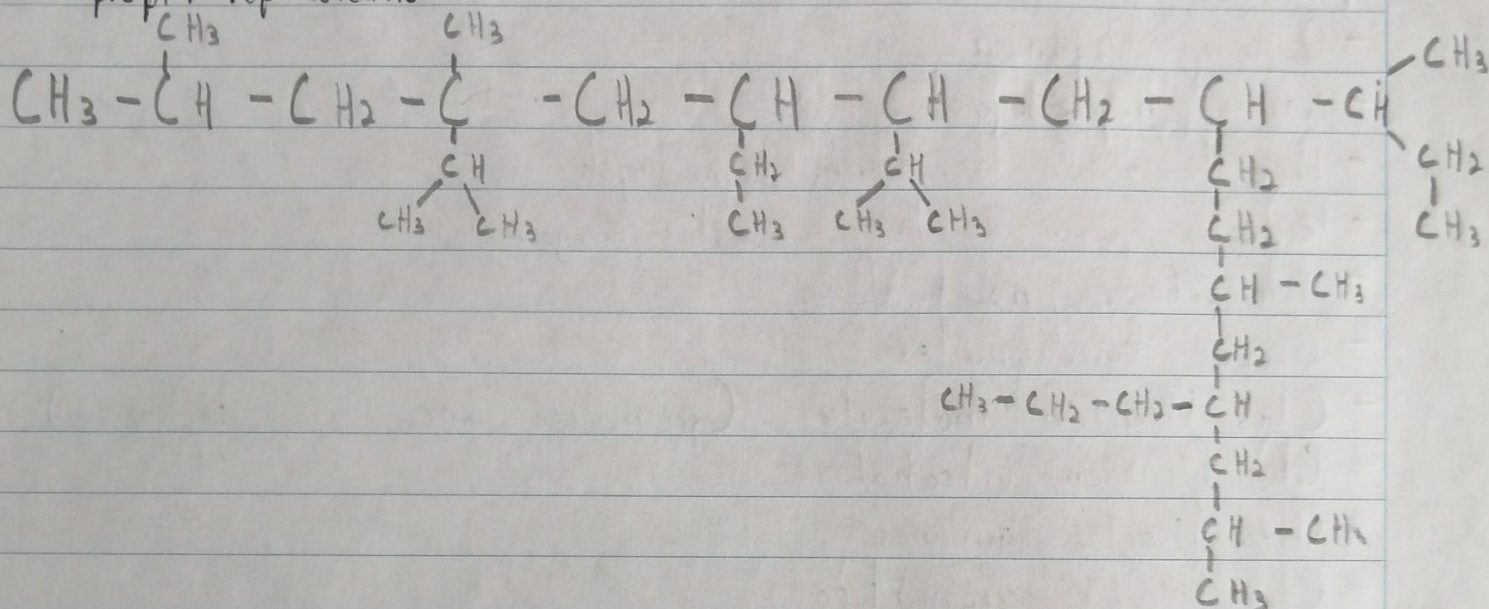 CH3 CH3 CH3
CH3 - CH - CH2 - C - CH2 - CH - CH - CH2 - CH - CH
CH CH2 CH CH2 CH2
CH3 CH3 CH3 CH3 CH3 CH2 CH3
CH - CH3
CH2
CH3 - CH2 - CH2 - CH
CH2
CH - CH3
CH3